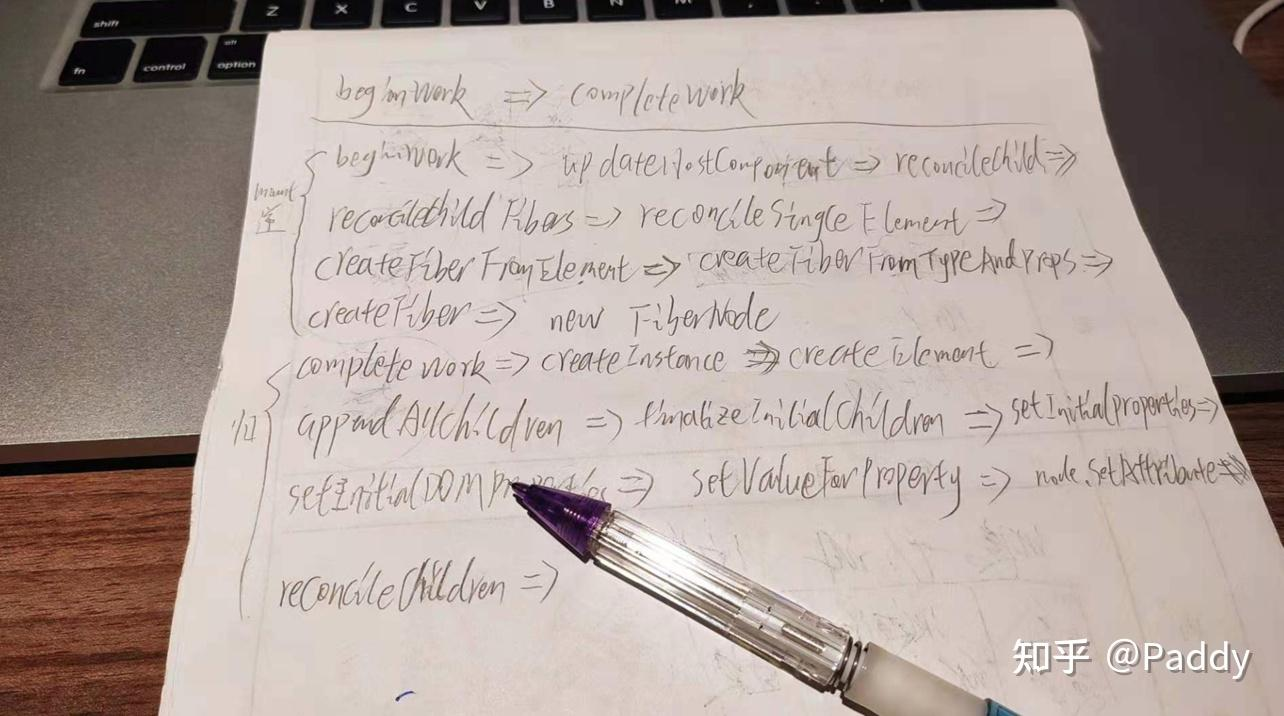 shift
Z X C V B N M
fn control alt option
beginWork => completeWork
mount
beginWork => updateHostComponent => reconcileChild =>
reconcileChildFibers => reconcileSingleElement =>
createFiberFromElement => createFiberFromTypeAndProps =>
createFiber => new FiberNode
completeWork => createInstance => createElement =>
appendAllChildren => finalizeInitialChildren => setInitialproperties =>
setInitialDOMProperties => setValueForProperty => node.setAttribute =>
reconcileChildren =>
知乎 @Paddy